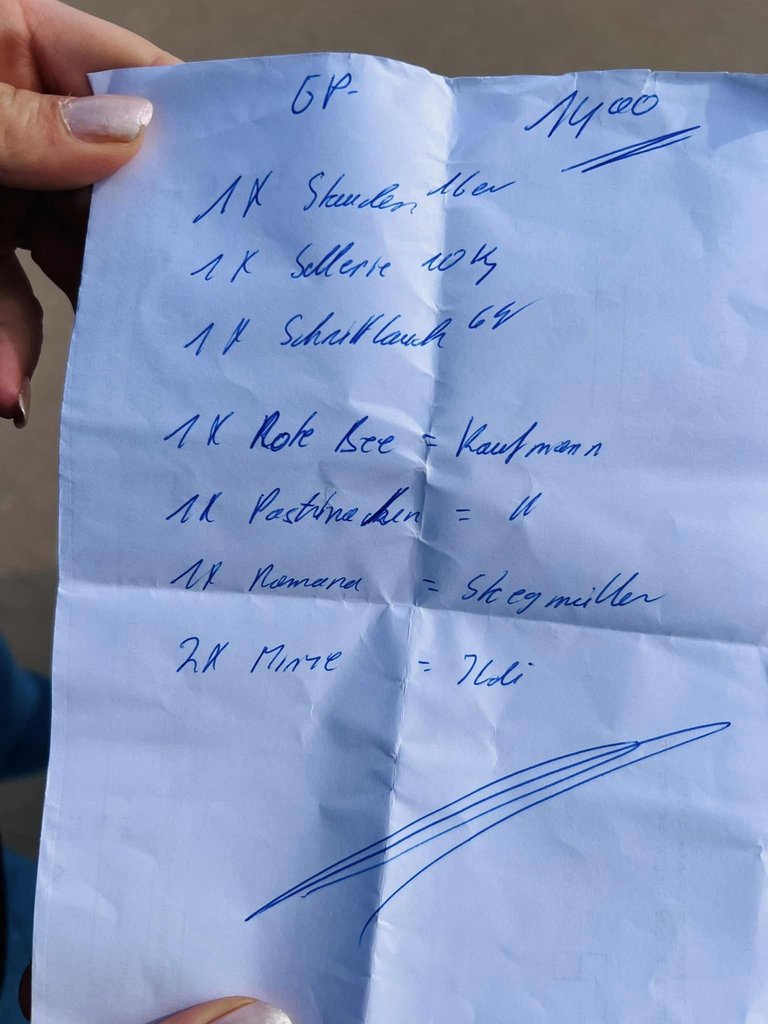 GP- 14 00
1 X Stauden 16er
1 X Sellerie 10 Kg
1 X Schnittlauch
1 X Rote Bee = Kaufmann
1 X Pastinacken = "
1 X Romana = Stegmüller
2 X Minze = Ildi